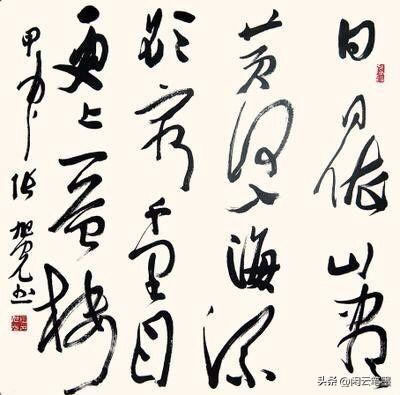 白日依山尽
黄河入海流
欲穷千里目
更上一层楼
甲午张旭光书
头条@闲云笔墨